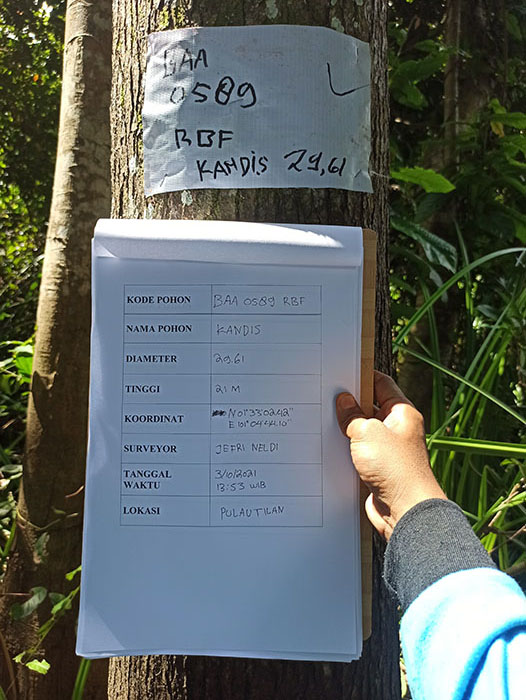 BAA
0589
RBF
KANDIS 29,61
KODE POHON BAA 0589 RBF
NAMA POHON KANDIS
DIAMETER 29.61
TINGGI 21 M
KOORDINAT N 01°33'02.42"
E 101°04'44.10"
SURVEYOR JEFRI NELDI
TANGGAL 3/10/2021
WAKTU 13:53 WIB
LOKASI PULAU TILAN